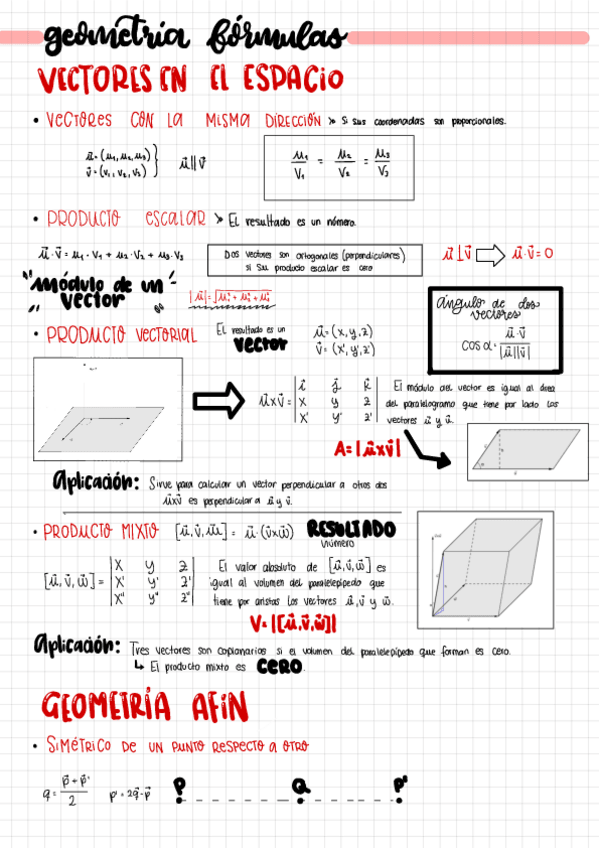 geometría fórmulas
VECTORES EN EL ESPACIO
• VECTORES CON LA MISMA DIRECCIÓN > Si sus coordenadas son proporcionales.
u⃗ = (u₁, u₂, u₃)
v⃗ = (v₁, v₂, v₃)
u⃗ || v⃗
u₁/v₁ = u₂/v₂ = u₃/v₃
• PRODUCTO ESCALAR > El resultado es un número.
u⃗ · v⃗ = u₁ · v₁ + u₂ · v₂ + u₃ · v₃
Dos vectores son ortogonales (perpendiculares)
si su producto escalar es cero
u⃗ ⊥ v⃗ ⇒ u⃗ · v⃗ = 0
módulo de un
vector
|u⃗| = √u₁² + u₂² + u₃²
ángulo de dos
vectores
cos α = u⃗ · v⃗ / |u⃗||v⃗|
• PRODUCTO VECTORIAL
El resultado es un
vector
u⃗ = (x, y, z)
v⃗ = (x', y', z')
u⃗ x v⃗ =
i⃗ j⃗ k⃗
x y z
x' y' z'
El módulo del vector es igual al área
del paralelogramo que tiene por lado los
vectores u⃗ y v⃗.
A = |u⃗ x v⃗|
Aplicación: Sirve para calcular un vector perpendicular a otros dos
u⃗ x v⃗ es perpendicular a u⃗ y v⃗.
• PRODUCTO MIXTO [u⃗, v⃗, w⃗] = u⃗ · (v⃗ x w⃗) RESULTADO
número
[u⃗, v⃗, w⃗] =
x y z
x' y' z'
x'' y'' z''
El valor absoluto de [u⃗, v⃗, w⃗] es
igual al volumen del paralelepípedo que
tiene por aristas los vectores u⃗, v⃗ y w⃗.
V = |[u⃗, v⃗, w⃗]|
Aplicación: Tres vectores son coplanarios si el volumen del paralelepípedo que forman es cero.
↳ El producto mixto es CERO.
GEOMETRÍA AFÍN
• SIMÉTRICO DE UN PUNTO RESPECTO A OTRO
q⃗ = p⃗ + p⃗' / 2
p' = 2q⃗ - p⃗
P Q P'